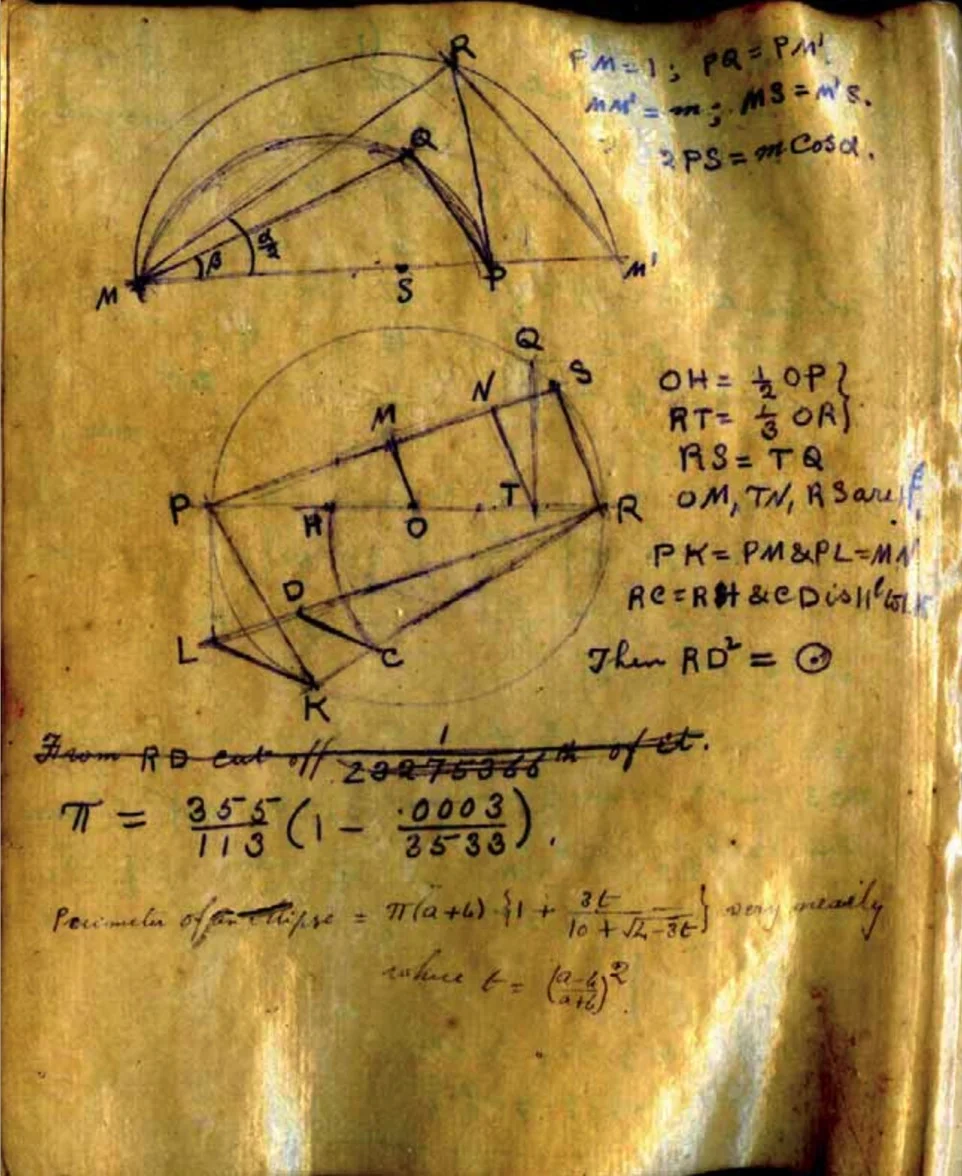 R
Q
β
α/2
M
S
P
M'
PM = 1 ; PQ = PM'.
MM' = m ; MS = M'S.
2PS = m Cos α.
Q
S
N
M
P
H
O
T
R
D
L
C
K
OH = 1/2 OP }
RT = 1/3 OR }
RS = TQ
OM, TN, RS are ||l.
PK = PM & PL = MN
RC = RH & CD is ||l to LK
Then RD² = ⊙
From RD cut off 1/23275366 th of it.
π = 355/113 (1 − .0003/3533).
Perimeter of an ellipse = π(a+b) {1 + 3t/(10 + √4−3t)} very nearly
where t = ((a−b)/(a+b))².